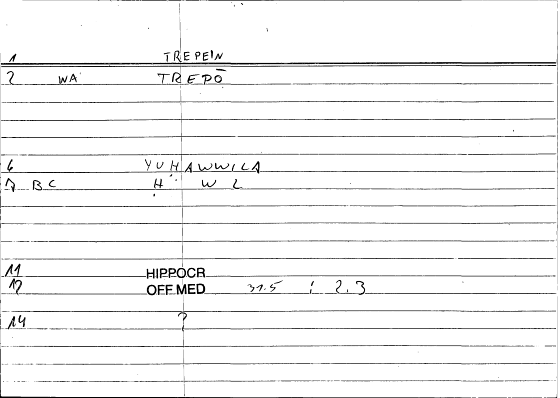 1 TREPEIN
2 WA TREPŌ
6 YUḤAWWILA
7 BC Ḥ W L
11 HIPPOCR
12 OFF.MED 31.5 : 2.3
14 ?